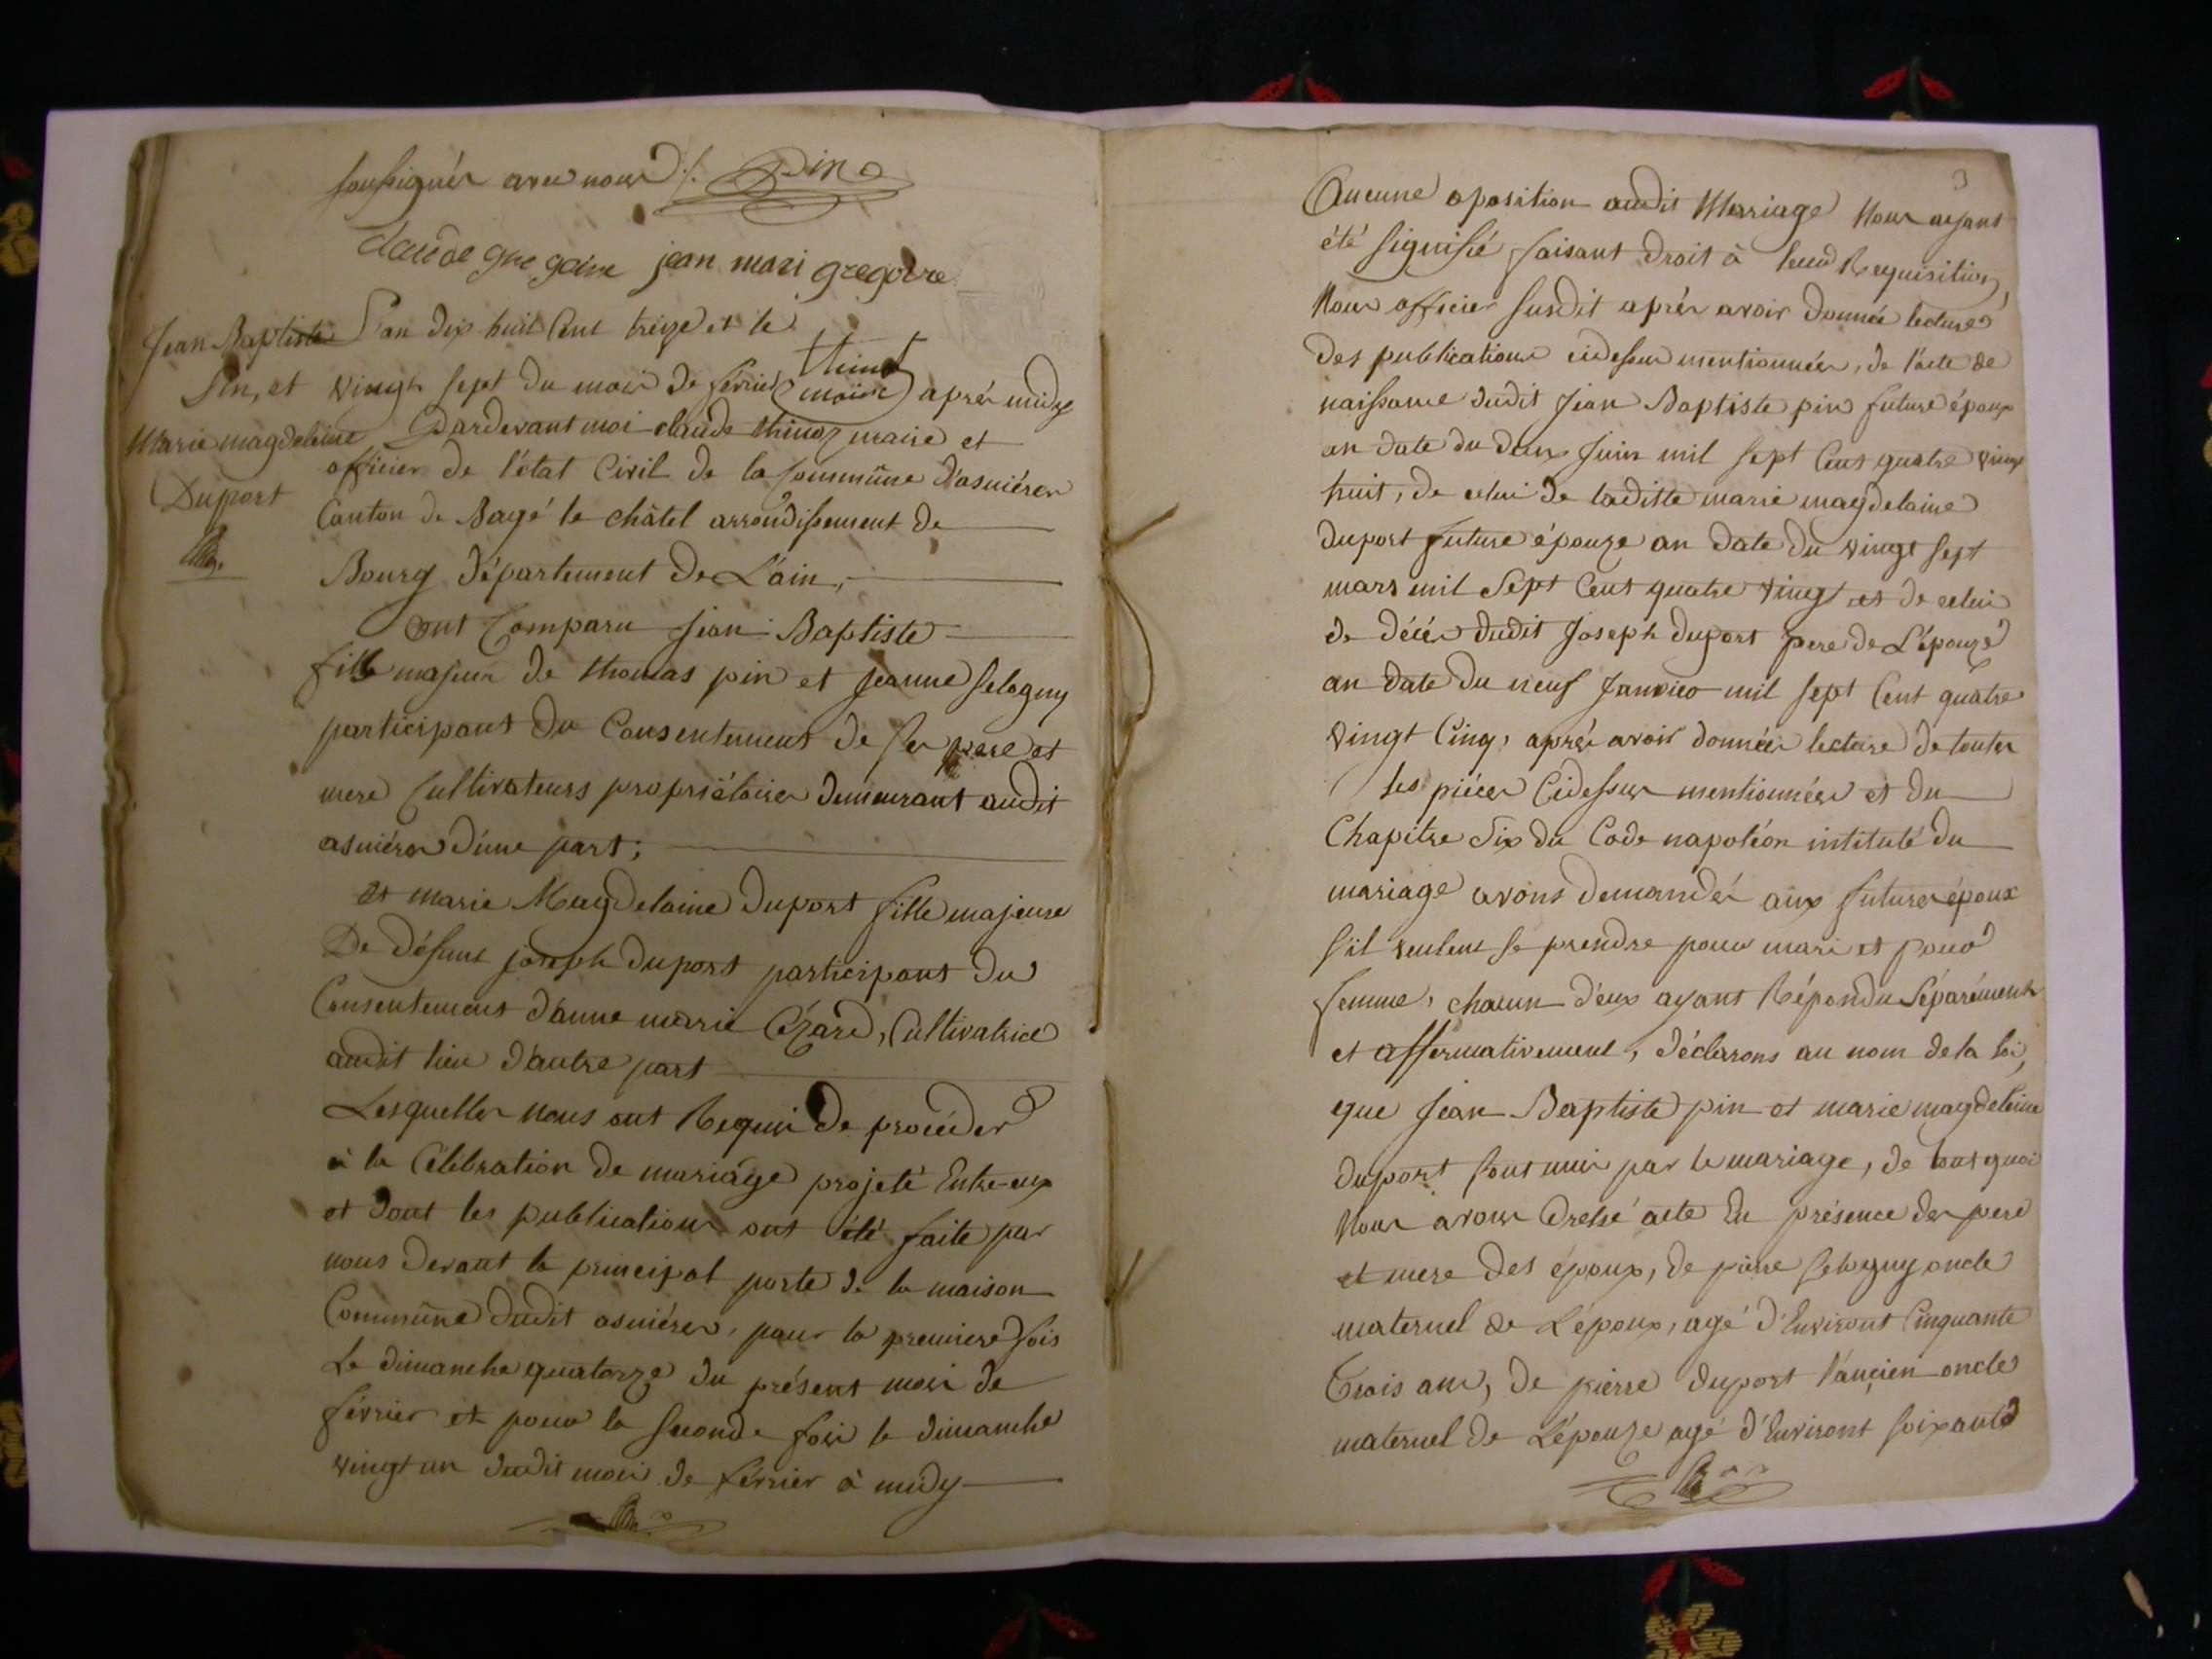 soussignés avec nous ./. Pin
claude gregoire jean mari gregoire
Jean Baptiste
Pin, et
Marie magdeleine
Duport
L'an dix huit Cent treize et le
vingt sept du mois de fevrier après midy
thinoz
maire
Pardevant moi claude thinoz maire et
officier de l'état Civil de la Commune d'asniéres
Canton de Bagé le châtel arrondissement de
Bourg département de L'ain,
Ont Comparu Jean Baptiste
fils majeur de thomas pin et Jeanne Selogny
participant du Consentement de ses pere et
mere Cultivateurs propriétaires demeurant audit
asniéres d'une part;
et marie Magdelaine Duport fille majeure
De défunt joseph duport participant du
Consentement d'anne marie Cézard, Cultivatrice
audit lieu d'autre part
Lesquelles nous ont Requis De procéder
à la Célébration de mariage projeté Entre-eux
et dont les publications ont été faite par
nous devant la principal porte de la maison
Commune dudit asniéres, pour la premiere fois
Le dimanche quatorze du présent mois de
février et pour la seconde fois le dimanche
vingt un dudit mois de février à midy
3
Aucune oposition audit Marriage Nous ayant
été signifié faisant droit à leur Requisition,
Nous officier susdit après avoir donnée lecture
des publications cidessus mentionnées, de l'acte de
naissance dudit Jean Baptiste pin future époux
an date du deux Juin mil sept Cent quatre vingt
huit, de celui de laditte marie magdelaine
duport future épouze an date du vingt sept
mars mil Sept Cent quatre vingt et de celui
de décés dudit Joseph duport pere de L'épouze
an date du neuf Janvier mil sept Cent quatre
vingt Cinq, aprés avoir données lecture de toutes
les piéces Cidessus mentionnées et du
Chapitre Six du Code napoléon intitulé du
mariage avons demandés aux futures époux
s'il veulent se prendre pour mari et pour
femme, chacun d'eux ayant Répondu Séparément
et affermativement, déclarons au nom de la loi,
que Jean Baptiste pin et marie magdeleine
duport sont unis par le mariage, de tout quoi
Nous avons dressé acte En présence des pere
et mere des époux, de pierre Selogny oncle
maternel de L'époux, agé d'Environt Cinquante
Trois ans, de pierre duport l'ancien oncle
maternel de L'épouze agé d'Environt soixante